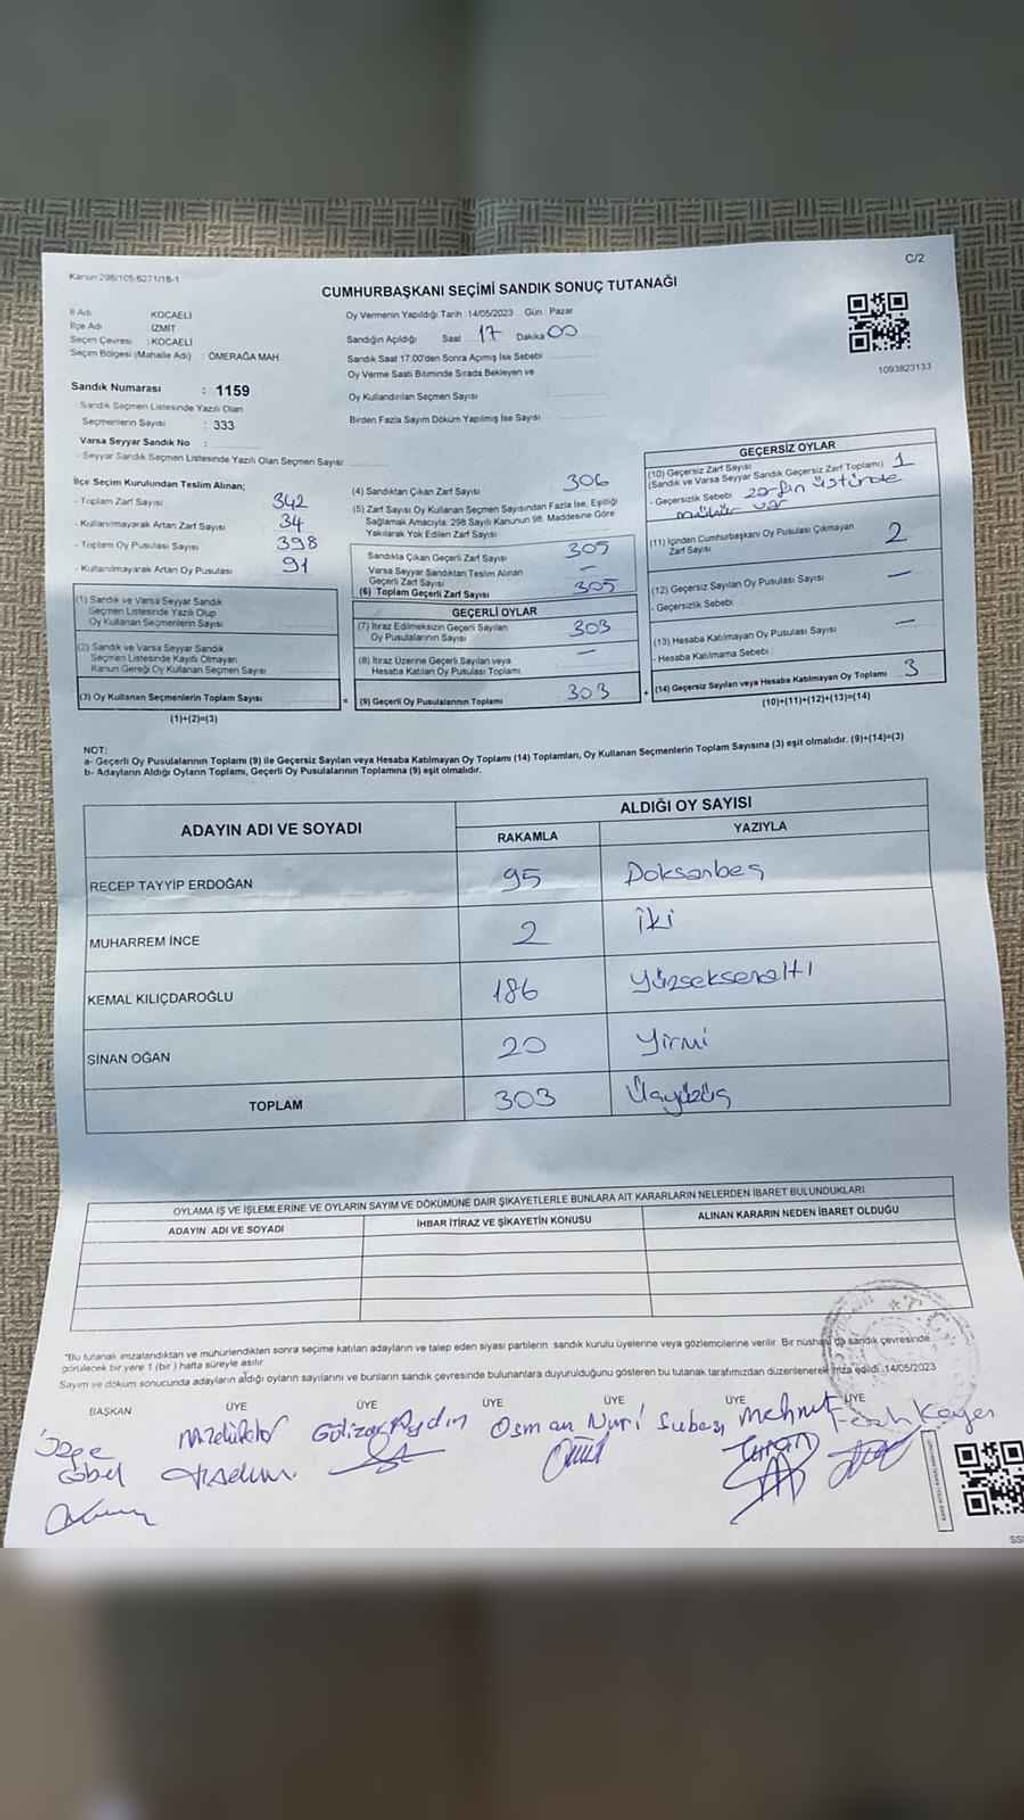 Kanun:298/105-6271/18-1
C/2
CUMHURBAŞKANI SEÇİMİ SANDIK SONUÇ TUTANAĞI
İl Adı KOCAELİ
İlçe Adı İZMİT
Seçim Çevresi : KOCAELİ
Seçim Bölgesi (Mahalle Adı) : ÖMERAĞA MAH.
Sandık Numarası : 1159
Sandık Seçmen Listesinde Yazılı Olan
Seçmenlerin Sayısı : 333
Varsa Seyyar Sandık No :
- Seyyar Sandık Seçmen Listesinde Yazılı Olan Seçmen Sayısı
Oy Vermenin Yapıldığı Tarih :14/05/2023 Gün : Pazar
Sandığın Açıldığı Saat 17 Dakika 00
Sandık Saat 17.00'den Sonra Açımış İse Sebebi
Oy Verme Saati Bitiminde Sırada Bekleyen ve
Oy Kullandırılan Seçmen Sayısı
Birden Fazla Sayım Döküm Yapılmış İse Sayısı
1093823133
İlçe Seçim Kurulundan Teslim Alınan;
- Toplam Zarf Sayısı 342
- Kullanılmayarak Artan Zarf Sayısı 34
- Toplam Oy Pusulası Sayısı 398
- Kullanılmayarak Artan Oy Pusulası 91
(1) Sandık ve Varsa Seyyar Sandık
Seçmen Listesinde Yazılı Olup
Oy Kullanan Seçmenlerin Sayısı
(2) Sandık ve Varsa Seyyar Sandık
Seçmen Listesinde Kayıtlı Olmayan
Kanun Gereği Oy Kullanan Seçmen Sayısı
(3) Oy Kullanan Seçmenlerin Toplam Sayısı =
(1)+(2)=(3)
(4) Sandıktan Çıkan Zarf Sayısı 306
(5) Zarf Sayısı Oy Kullanan Seçmen Sayısından Fazla İse, Eşitliği
Sağlamak Amacıyla; 298 Sayılı Kanunun 98. Maddesine Göre
Yakılarak Yok Edilen Zarf Sayısı
Sandıkta Çıkan Geçerli Zarf Sayısı 305
Varsa Seyyar Sandıktan Teslim Alınan
Geçerli Zarf Sayısı –
(6) Toplam Geçerli Zarf Sayısı 305
GEÇERLİ OYLAR
(7) İtiraz Edilmeksizin Geçerli Sayılan
Oy Pusulalarının Sayısı 303
(8) İtiraz Üzerine Geçerli Sayılan veya
Hesaba Katılan Oy Pusulası Toplamı –
(9) Geçerli Oy Pusulalarının Toplamı 303 +
GEÇERSİZ OYLAR
(10) Geçersiz Zarf Sayısı
(Sandık ve Varsa Seyyar Sandık Geçersiz Zarf Toplamı) 1
- Geçersizlik Sebebi zarfın üstünde
mühür var
(11) İçinden Cumhurbaşkanı Oy Pusulası Çıkmayan
Zarf Sayısı 2
(12) Geçersiz Sayılan Oy Pusulası Sayısı –
- Geçersizlik Sebebi
(13) Hesaba Katılmayan Oy Pusulası Sayısı –
- Hesaba Katılmama Sebebi
(14) Geçersiz Sayılan veya Hesaba Katılmayan Oy Toplamı 3
(10)+(11)+(12)+(13)=(14)
NOT:
a- Geçerli Oy Pusulalarının Toplamı (9) ile Geçersiz Sayılan veya Hesaba Katılmayan Oy Toplamı (14) Toplamları, Oy Kullanan Seçmenlerin Toplam Sayısına (3) eşit olmalıdır. (9)+(14)=(3)
b- Adayların Aldığı Oyların Toplamı, Geçerli Oy Pusulalarının Toplamına (9) eşit olmalıdır.
ADAYIN ADI VE SOYADI
ALDIĞI OY SAYISI
RAKAMLA YAZIYLA
RECEP TAYYİP ERDOĞAN 95 Doksanbeş
MUHARREM İNCE 2 İki
KEMAL KILIÇDAROĞLU 186 Yüzseksenaltı
SİNAN OĞAN 20 Yirmi
TOPLAM 303 Üçyüzüç
OYLAMA İŞ VE İŞLEMLERİNE VE OYLARIN SAYIM VE DÖKÜMÜNE DAİR ŞİKAYETLERLE BUNLARA AİT KARARLARIN NELERDEN İBARET BULUNDUKLARI
ADAYIN ADI VE SOYADI İHBAR İTİRAZ VE ŞİKAYETİN KONUSU ALINAN KARARIN NEDEN İBARET OLDUĞU
"Bu tutanak imzalandıktan ve mühürlendikten sonra seçime katılan adayların ve talep eden siyasi partilerin sandık kurulu üyelerine veya gözlemcilerine verilir. Bir nüshası da sandık çevresinde
görülecek bir yere 1 (bir ) hafta süreyle asılır.
Sayım ve döküm sonucunda adayların aldığı oyların sayılarını ve bunların sandık çevresinde bulunanlara duyurulduğunu gösteren bu tutanak tarafımızdan düzenlenerek imza edildi.14/05/2023
BAŞKAN ÜYE ÜYE ÜYE ÜYE ÜYE ÜYE
Gülizar Aydın Osman Nuri Subaşı Mehmet